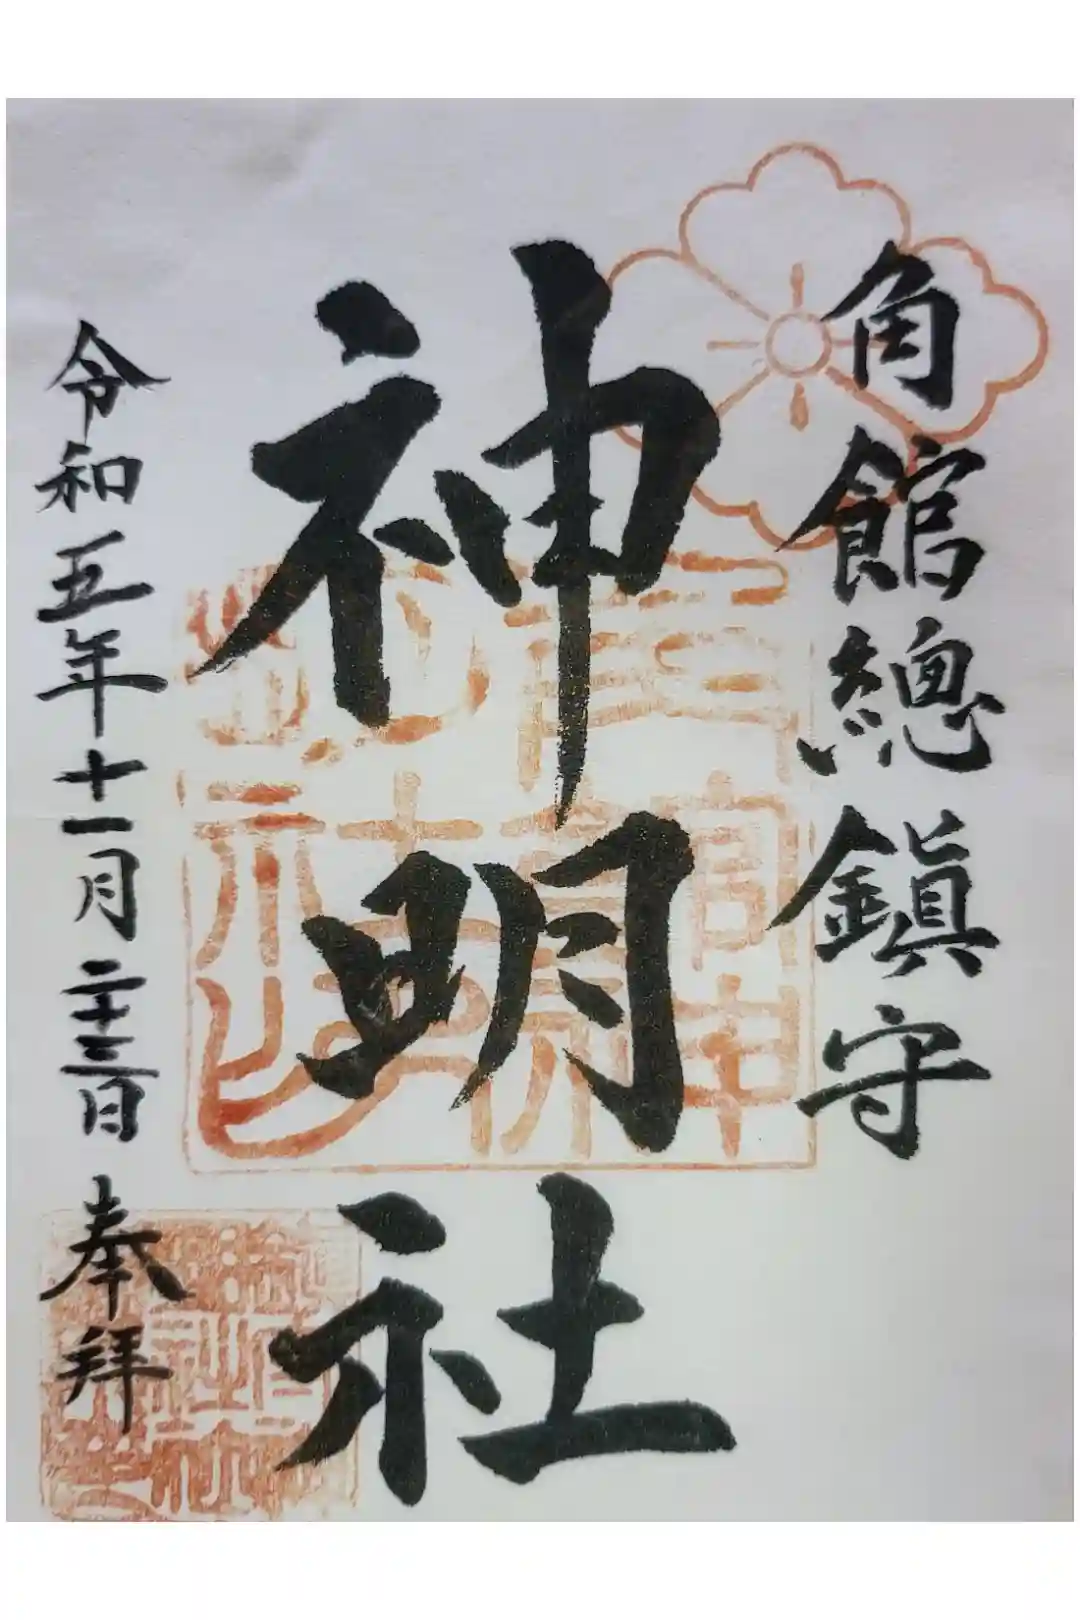 角館總鎮守
神明社
令和五年十一月二十三日 奉拝